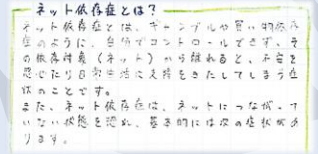 ネット依存症とは？
ネット依存症とは、ギャンブルや買い物依存
症のように、自分でコントロールできず、そ
の依存対象（ネット）から離れると、不安を
感じたり日常生活に支障をきたしてしまう症
状のことです。
また、ネット依存症は、ネットにつながって
いない状態を恐れ、基本的には次の症状があ
ります。